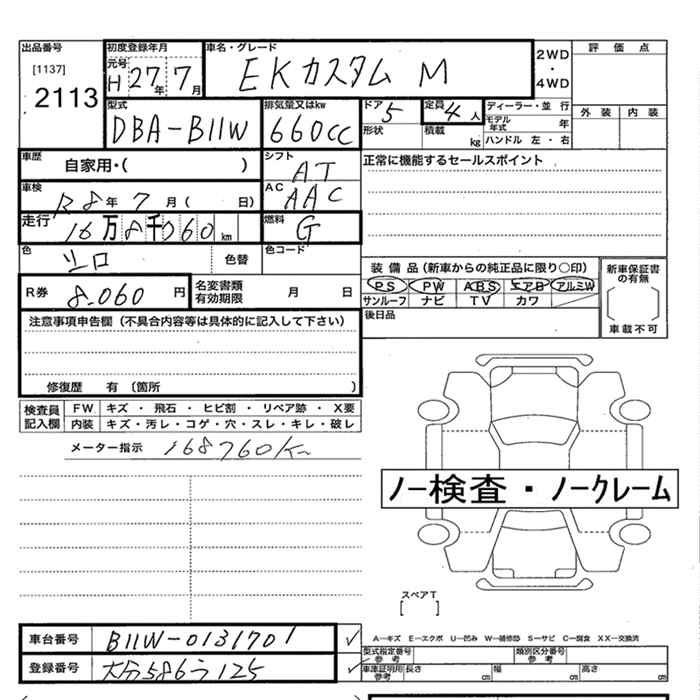 出品番号 初度登録年月 車名・グレード 2WD・4WD 評価点
[1137] 元号 H 27年 7月 EKカスタム M
2113 外装 内装
型式 排気量又はkw ドア 5 定員 4人 ディーラー・並行
DBA-B11W 660cc 形状 積載 kg モデル年式 年
ハンドル 左・右
車歴 自家用・( ) シフト AT 正常に機能するセールスポイント
車検 R8年 7月( 日) AC AAC
走行 16万8千760km 燃料 G
色 色替 色コード
装備品(新車からの純正品に限り○印) 新車保証書の有無
R券 8.060円 名変書類有効期限 月 日 PS PW ABS エアB アルミW
サンルーフ ナビ TV カワ
注意事項申告欄(不具合内容等は具体的に記入して下さい) 後日品 車載不可
修復歴 有(箇所 )
検査員記入欄 FW キズ・飛石・ヒビ割・リペア跡・X要
内装 キズ・汚レ・コゲ・穴・スレ・キレ・破レ
メーター指示 168760K
ノー検査・ノークレーム
スペアT
[ ]
車台番号 B11W-0131701 A―キズ E―エクボ U―凹み W―補修跡 S―サビ C―腐食 XX―交換済
型式指定番号 参考 類別区分番号 参考
登録番号 大分586う125 車庫証明用参考 長さ cm 幅 cm 高さ cm